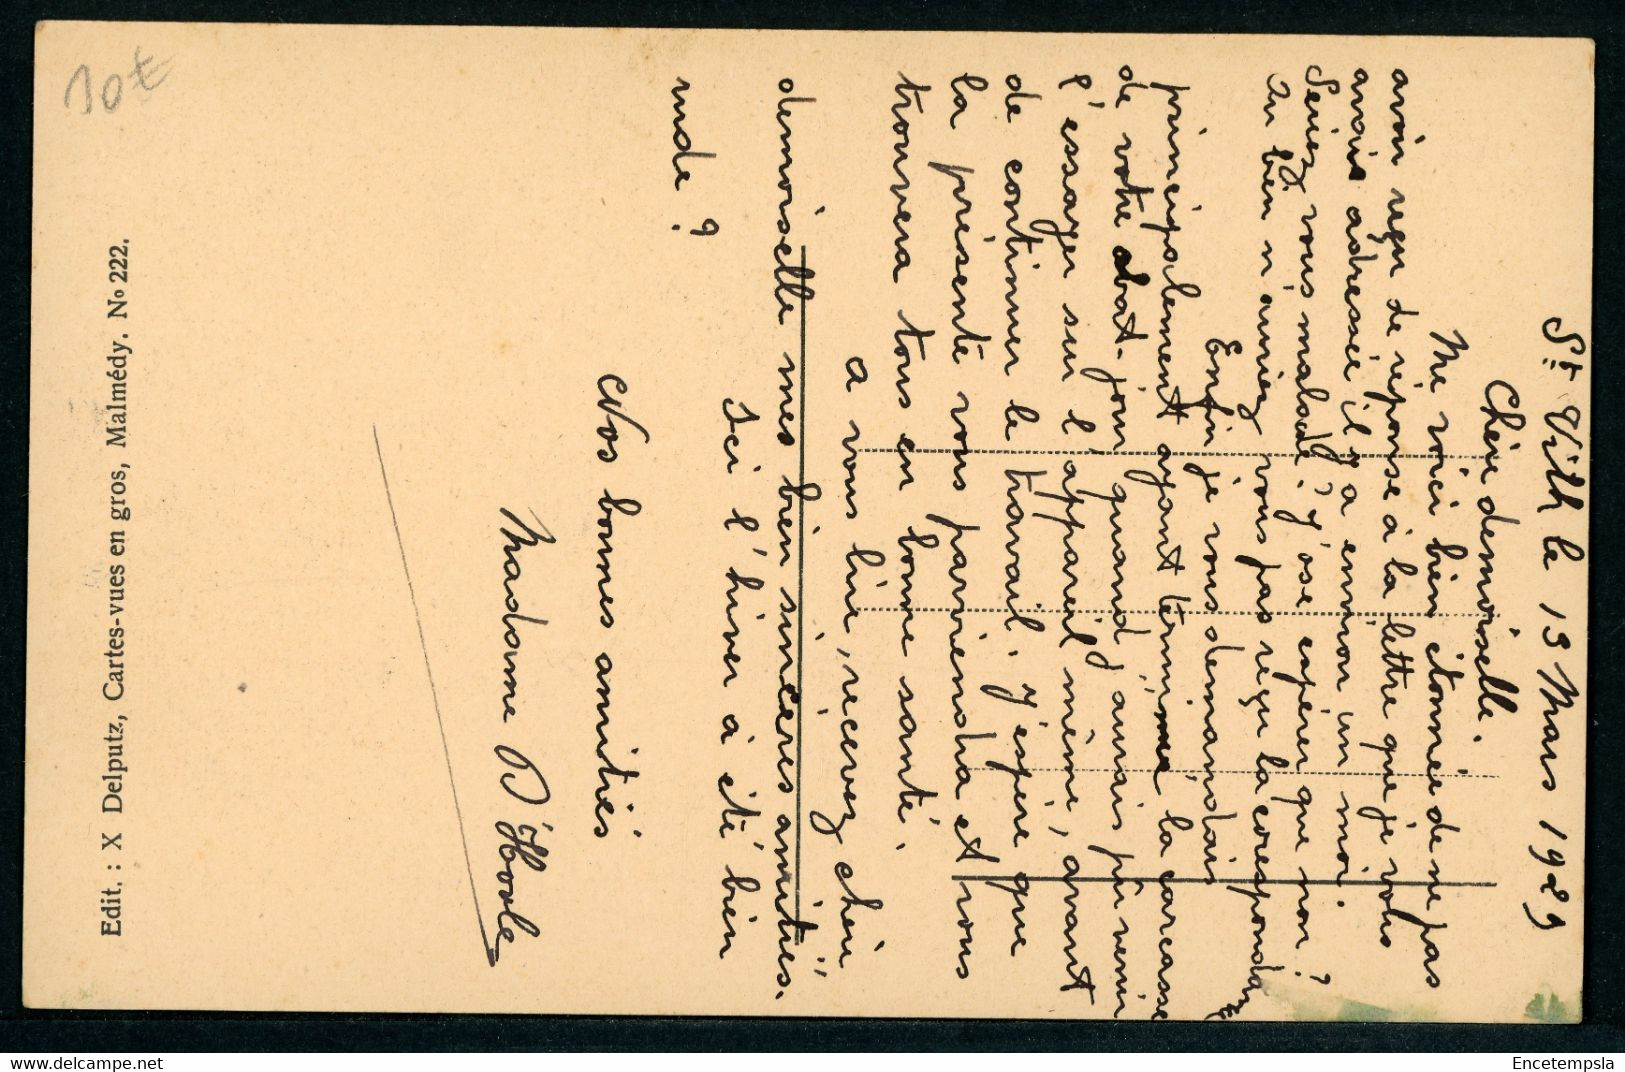 St Vith le 13 Mars 1929
Chère demoiselle.
Me voici bien étonnée de ne pas
avoir reçu de réponse à la lettre que je vous
avais adressée il y a environ un moi.
Seriez vous malade? J'ose espérer que non?
Ou bien n'auriez vous pas reçu la correspondance
Enfin je vous demandais
principalement ayant terminée la carcasse
de votre abat-jour quand j'aurais pû venir
l'essayer sur l'appareil même, avant
de continuer le travail. J'espère que
la présente vous parviendra et vous
trouvera tous en bonne santé.
a vous lire, recevez chère
demoiselle mes bien sincères amitiés.
Ici l'hiver à été bien
rude?
Nos bonnes amitiés
Madame D'Hoole
Edit. : X Delputz, Cartes-vues en gros, Malmédy. No 222.
10t
Encetempsla